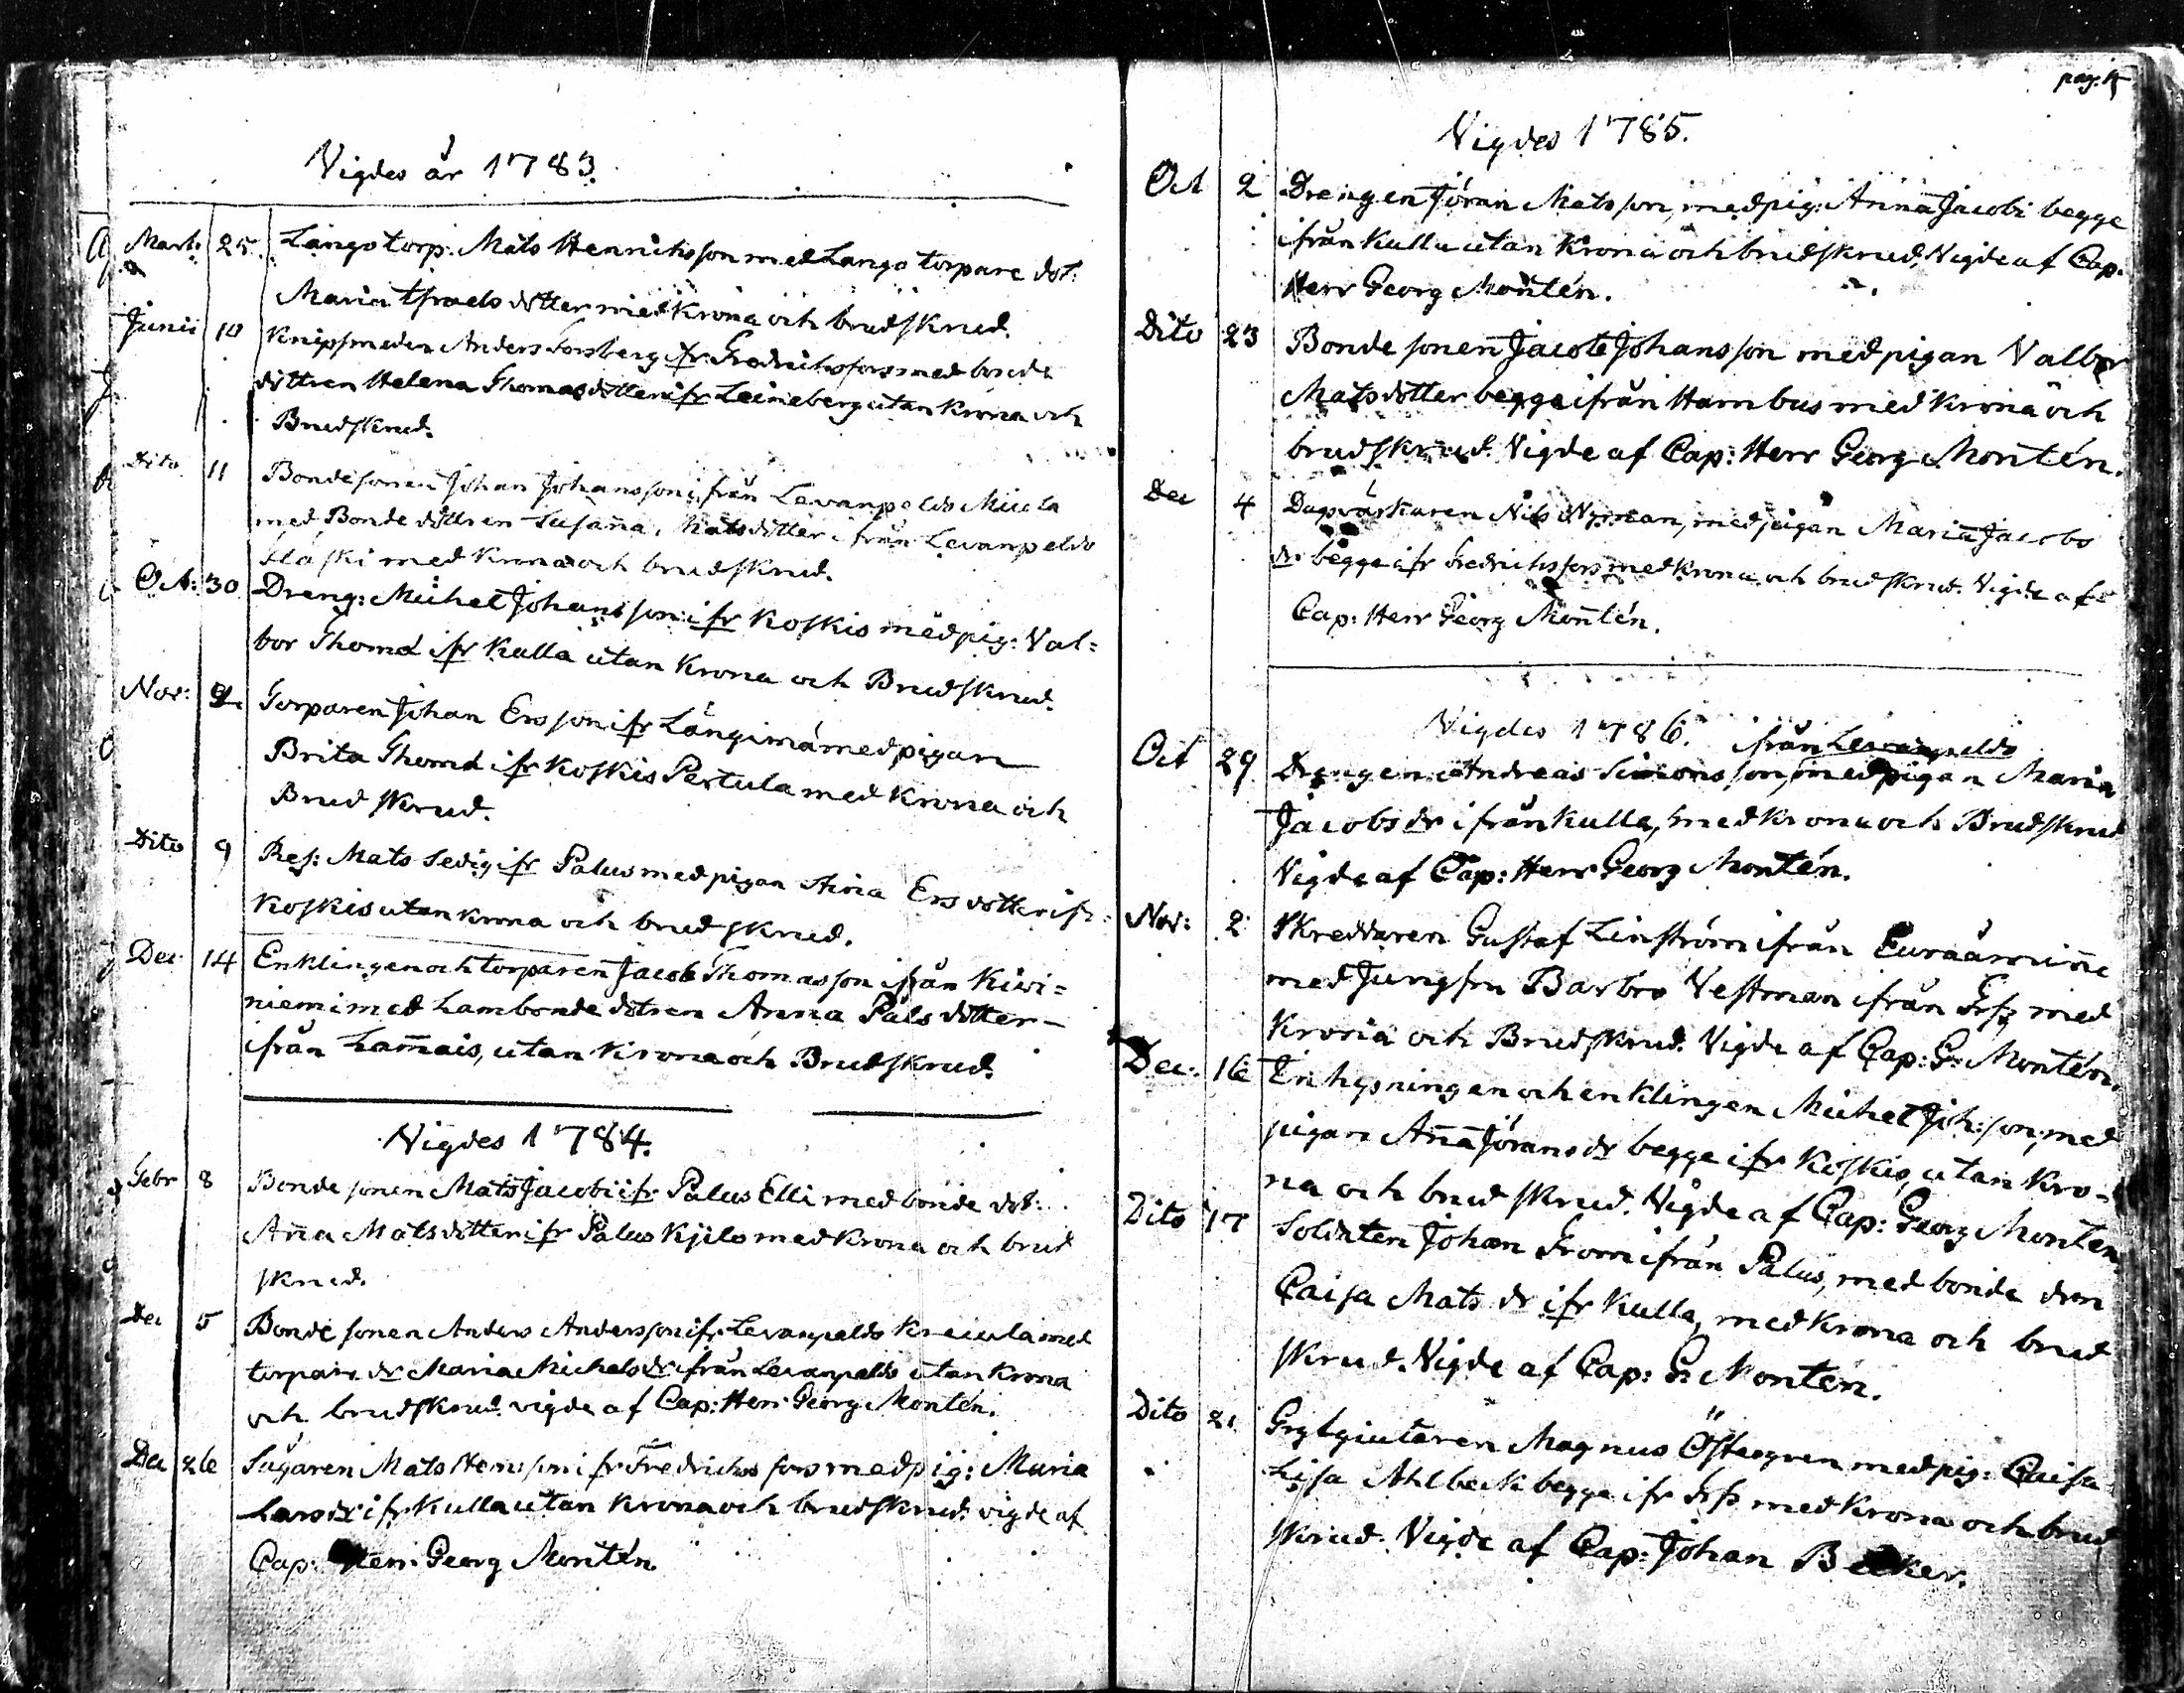 Vigdes år 1783.
Mart. 25. Långo torp: Mats Henrichsson med Långo torpare dot:
Maria Israels dotter med krona och brudskrud.
Junii 10 Knipsmeden Anders Forsberg ifr Fredrichsfors med bonde
dottren Helena Thomasdotter ifr Leineberg utan krona och
Brudskrud.
Dito 11 Bondesonen Johan Johansson ifrån Levanpeldo Micola
med Bonde dottren Susaña, Matsdotter ifrån Levanpeldo
Haski med krona och brudskrud.
Oct: 30. Dreng: Michel Johansson ifr Koskis med pig: Val=
bor Thomd ifr Kulla utan Krona och Brudskrud.
Nov: 2 Torparen Johan Ersson ifr Långimá med pigan
Brita Thomd ifr Koskis Pertula med krona och
Brudskrud.
Dito 9 Res: Mats Sedig ifr Palus med pigan Aña Ersdotter ifr
Koskis utan krona och brudskrud.
Dec 14 Enklingen och torparen Jacob Thomasson ifrån Kiwi=
niemi med Lambonde dotren Anna Påls dotter
ifrån Lam̃ais, utan krona och Brudskrud.
Vigdes 1784.
Febr 8 Bonde sonen Mats Jacobi ifr Palus Elli med bonde dot:
Aña Matsdotter ifr Palus Kjilo med Krona och brud
skrud.
Dec 5 Bonde sonen Anders Andersson ifr Levanpeldo Kreiula med
torpare dr Maria Michelsdr ifrån Levanpeldo utan Krona
och brudskrud vigde af Cap: Herr Georg Montén.
Dec 26 Sågaren Mats Hensson ifr Fredrichsfors med pig: Maria
Larsdr ifr Kulla utan Krona och brudskrud. vigde af
Cap: Herr Georg Montén
pag. 4
Vigdes 1785.
Oct 2 Drengen Jöran Matsson, med pig: Añna Jacobi begge
ifrån Kulla utan Krona och brudskrud, Vigde af Cap.
Herr Georg Montén.
Dito 23 Bonde sonen Jacob Johansson med pigan Valbor
Matsdotter begge ifrån Hambus med Krona och
brudskrud. Vigde af Cap: Herr Georg Montén.
Dec 4 Dagsvärkaren Nils Nyman, med pigan Maria Jacobs
dr begge ifr Fredrichsfors med Krona och brudskrud. Vigde af
Cap: Herr Georg Montén.
Vigdes 1786.
ifrån Levanpeldo
Oct 29 Drengen Andreas Simonsson, med pigan Maria
Jacobs dr ifrån Kulla, med krona och Brudskrud
Vigde af Cap: Herr Georg Montén.
Nov: 2 Skreddaren Gustaf Linström ifrån Euraåmiñe
med Jungfru Barbro Vestman ifrån Frfs med
Krona och Brudskrud. Vigde af Cap: G: Montén.
Dec. 16 Inhysningen och enklingen Michel Joh:son, med
pigan Aña Jöransdr begge ifr Koskis, utan Kro-
na och brudskrud. Vigde af Cap: Georg Montén
Dito 17 Soldaten Johan From ifrån Palus, med bonde dren
Caisa Mats dr ifr Kulla, med Krona och brud
skrud. Vigde af Cap: G: Montén.
Dito 21 Grytgiutaren Magnus Östergren med pig: Caisa
Lisa Ahlbeck begge ifr Frfs med Krona och brud
skrud. Vigde af Cap: Johan Becker.